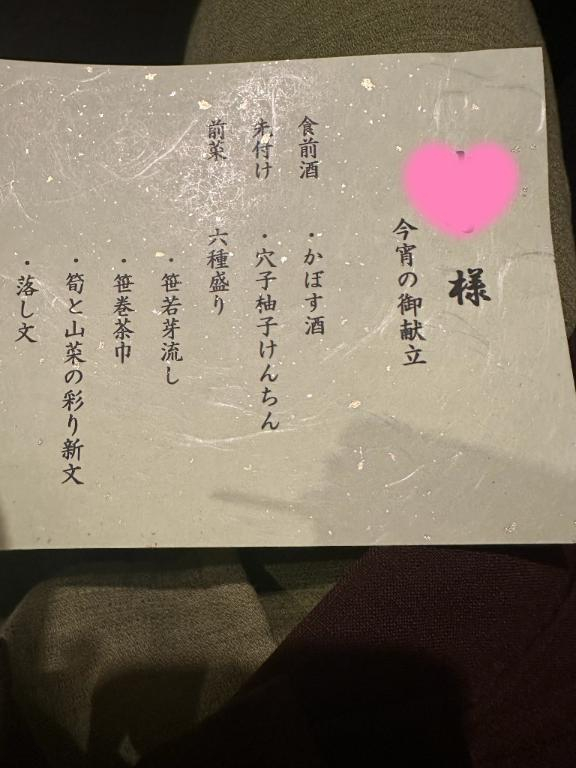 様
今宵の御献立
食前酒 ・かぼす酒
先付け ・穴子柚子けんちん
前菜 六種盛り
・笹若芽流し
・笹巻茶巾
・筍と山菜の彩り新文
・落し文